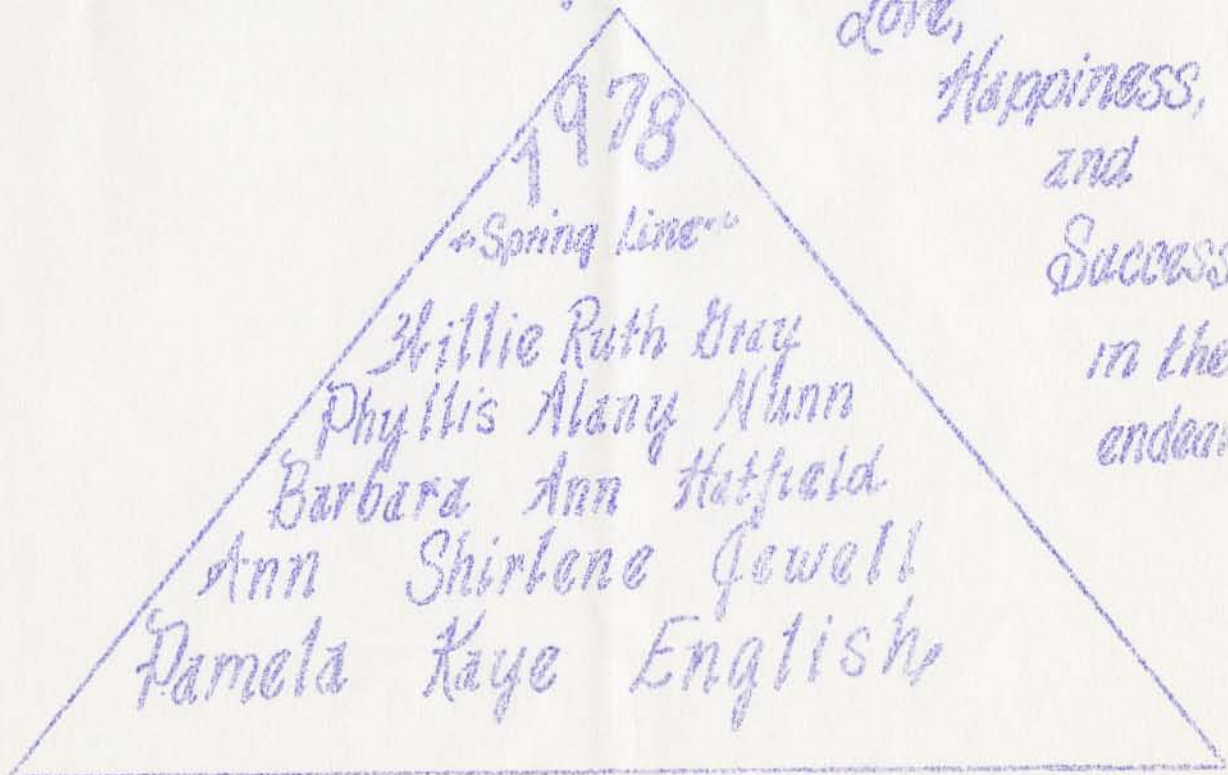 1978
~Spring Line~
Willie Ruth Gray
Phyllis Alany Nunn
Barbara Ann Hatfield
Ann Shirlene Jewell
Pamela Kaye English
Love,
Happiness,
and
Success
in the